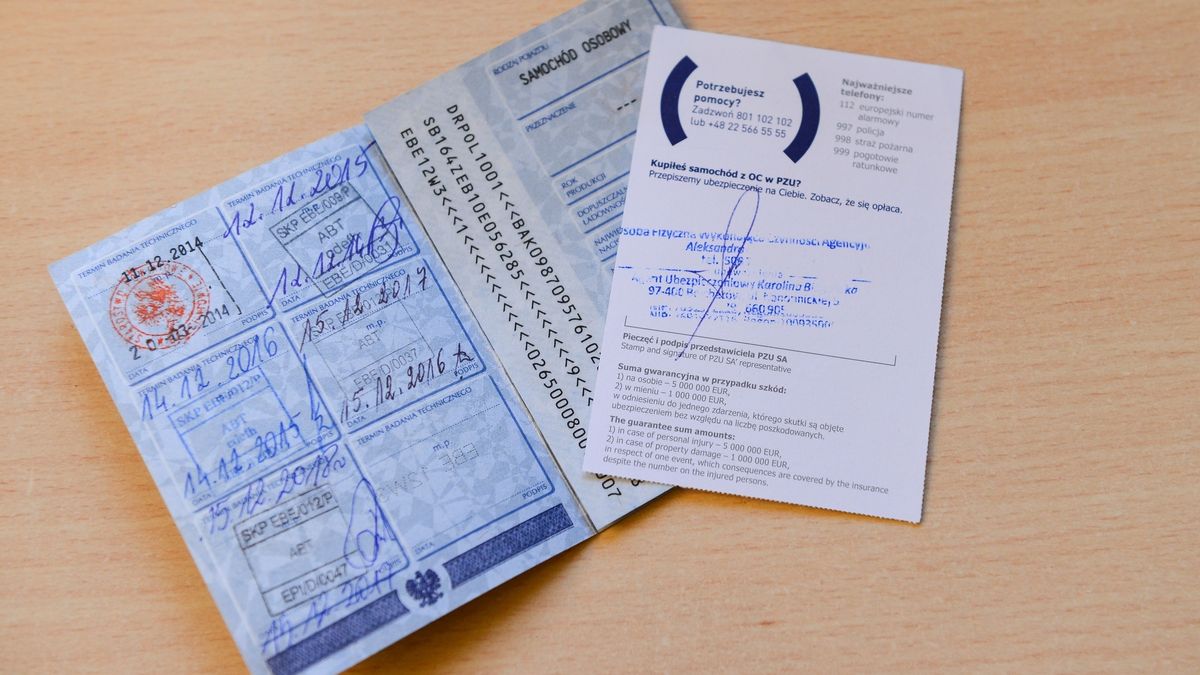 TERMIN BADANIA TECHNICZNEGO
11.12.2014
20 -03- 2014
DATA
PODPIS
TERMIN BADANIA TECHNICZNEGO
12.12.2015
SKP EBE/009/P
ABT
EBE/D/0031
12.12.14
DATA
PODPIS
TERMIN BADANIA TECHNICZNEGO
14.12.2016
SKP EBE/012/P
ABT
14.12.2015
DATA
PODPIS
TERMIN BADANIA TECHNICZNEGO
15.12.2017
m.p.
ABT
EBE/D/0037
15.12.2016
DATA
PODPIS
15.12.2018
SKP EBE/012/P
ABT
EPI/D/0047
12.2017
TERMIN BADANIA TECHNICZNEGO
m.p.
DATA
PODPIS
DRPOL1001<<<BAK098709576102
SB164ZEB10E056285<<<<<<
EBE12W3<<<1<<<
<<9<<
<<<0265000800
007
RODZAJ POJAZDU
SAMOCHÓD OSOBOWY
PRZEZNACZENIE
---
ROK
PRODUKCJI
DOPUSZCZALNA
ŁADOWNOŚĆ
Potrzebujesz
pomocy?
Zadzwoń 801 102 102
lub +48 22 566 55 55
Najważniejsze
telefony:
112 europejski numer
alarmowy
997 policja
998 straż pożarna
999 pogotowie
ratunkowe
Kupiłeś samochód z OC w PZU?
Przepiszemy ubezpieczenie na Ciebie. Zobacz, że się opłaca.
Osoba Fizyczna Wykonująca Czynności Agencyjne
Aleksandra
tel.
Agent Ubezpieczeniowy Karolina
97-400
Pieczęć i podpis przedstawiciela PZU SA
Stamp and signature of PZU SA' representative
Suma gwarancyjna w przypadku szkód:
1) na osobie – 5 000 000 EUR,
2) w mieniu – 1 000 000 EUR,
w odniesieniu do jednego zdarzenia, którego skutki są objęte
ubezpieczeniem bez względu na liczbę poszkodowanych.
The guarantee sum amounts:
1) in case of personal injury – 5 000 000 EUR,
2) in case of property damage – 1 000 000 EUR,
in respect of one event, which consequences are covered by the insurance
despite the number on the injured persons.